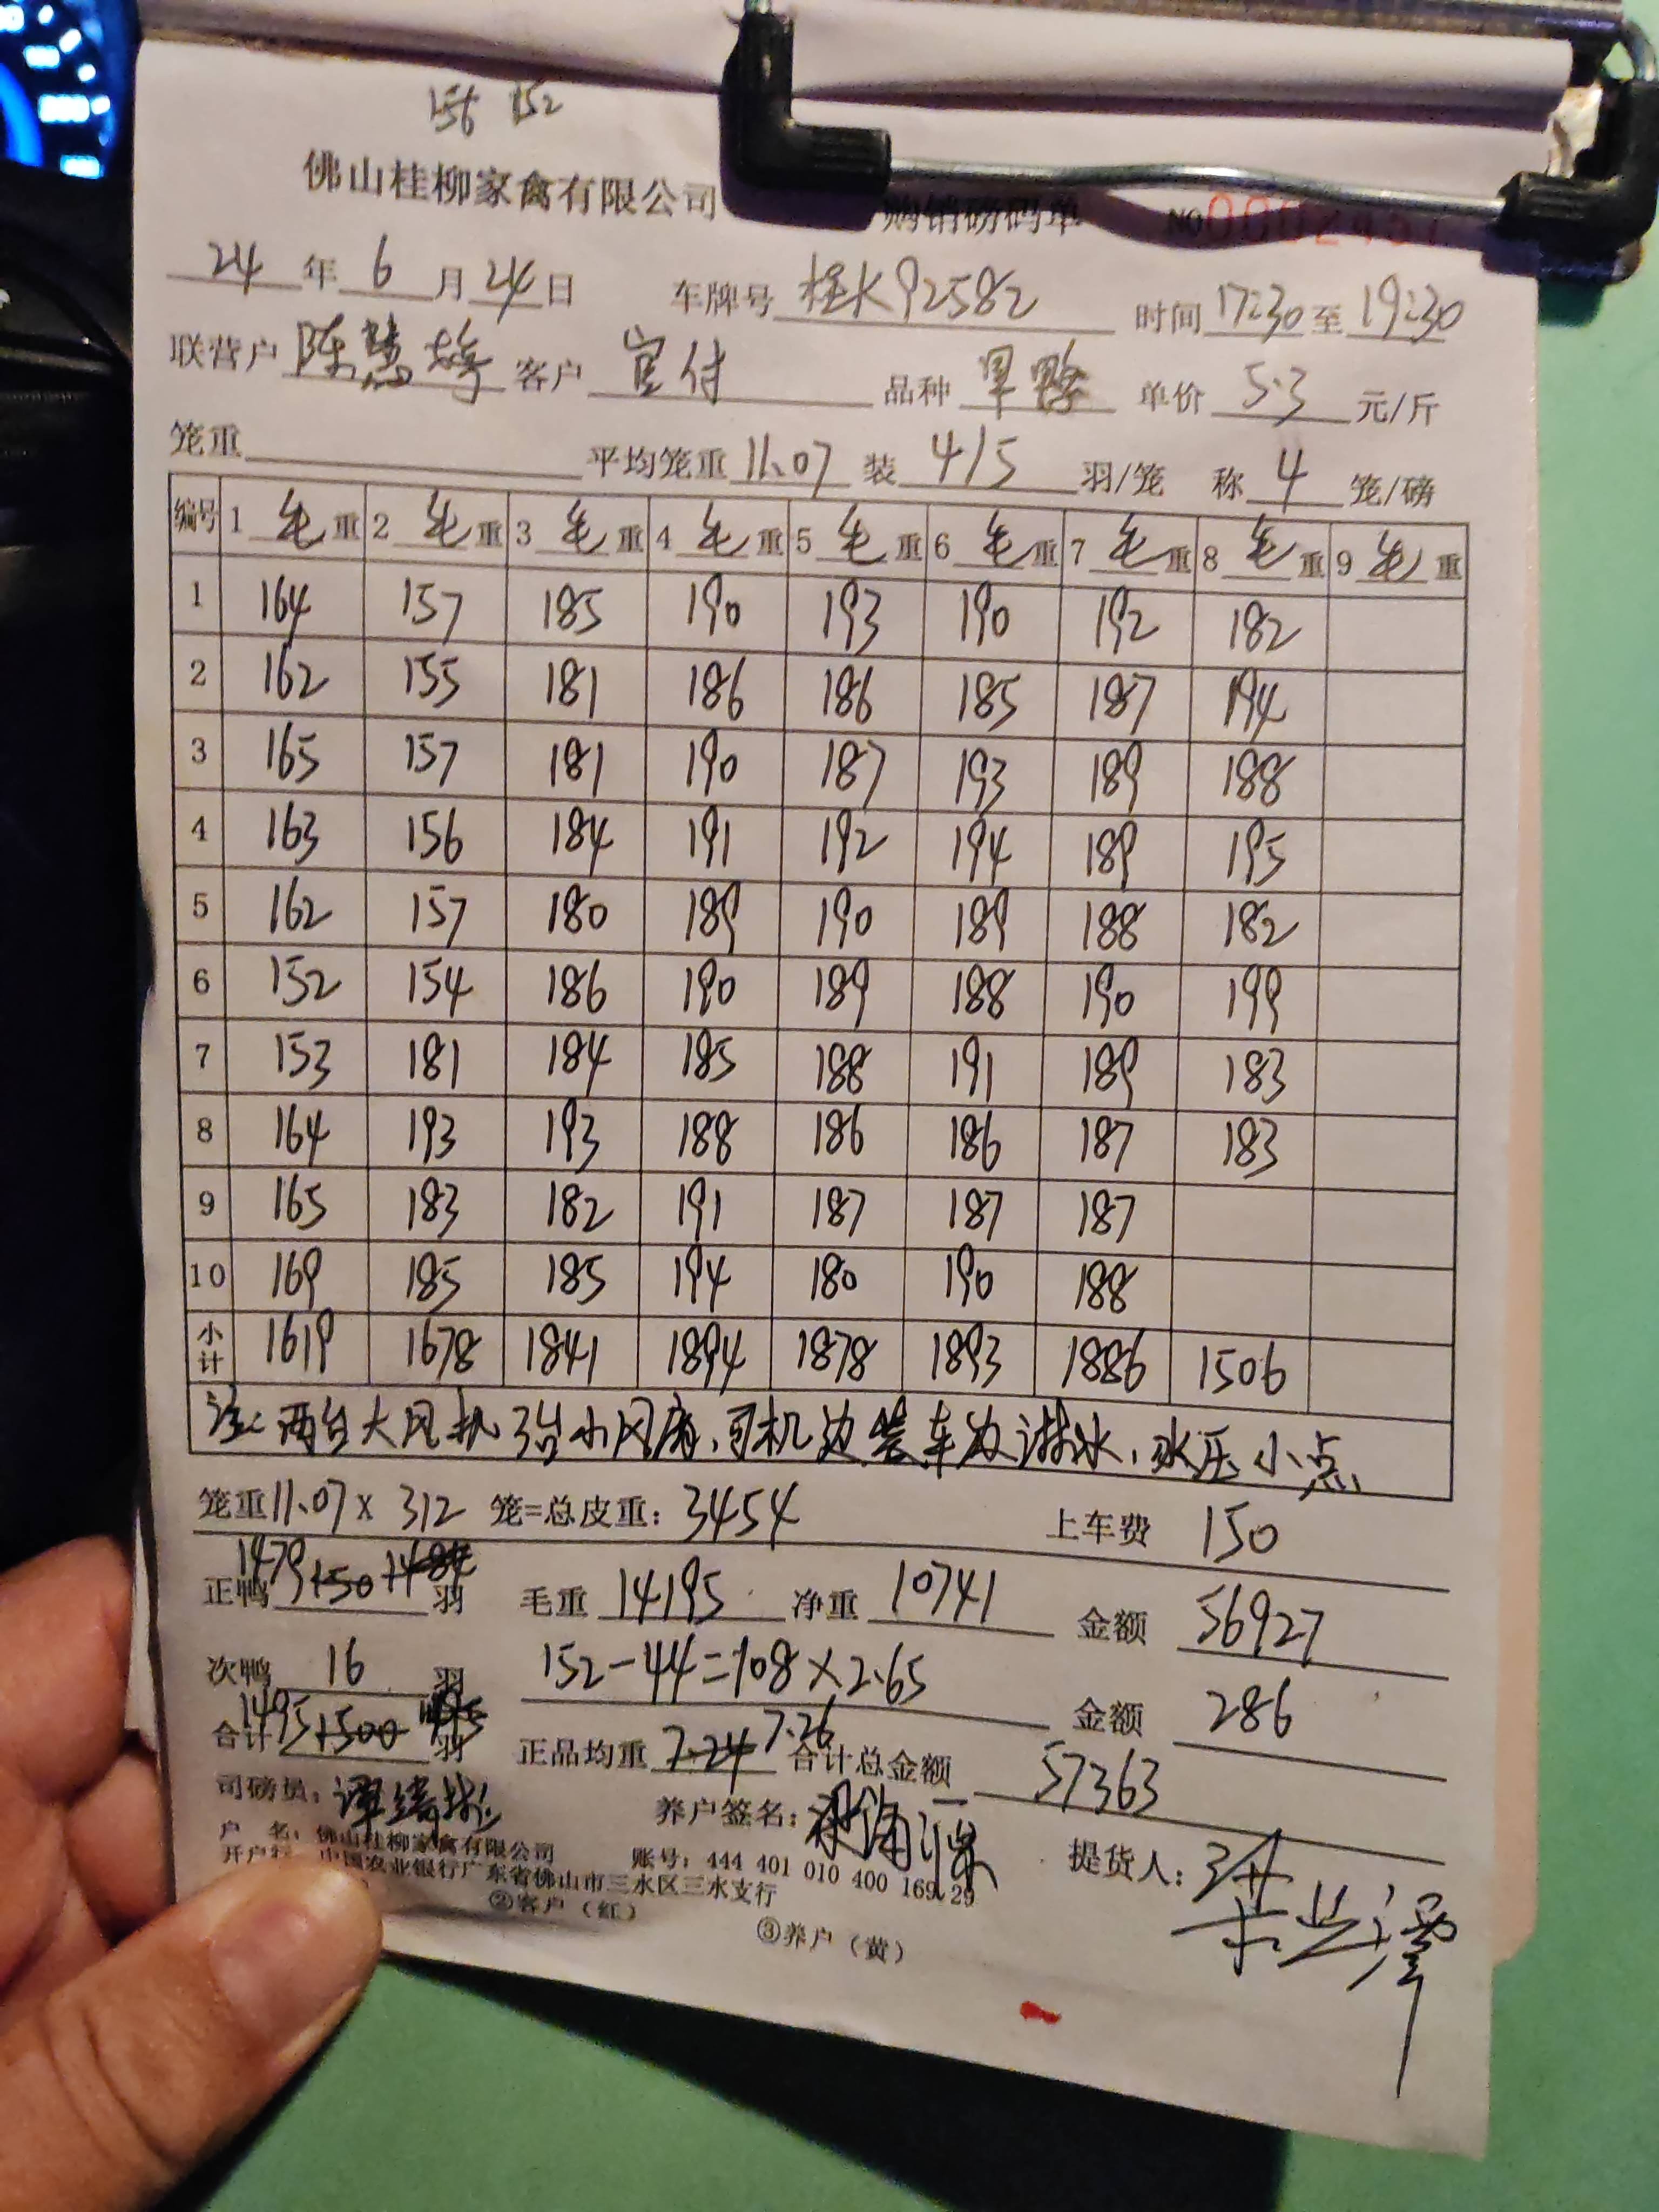 156 152
佛山桂柳家禽有限公司 购销磅码单 NO
24 年 6 月 24 日 车牌号 桂K92582 时间 17:30 至 19:30
联营户 陈慧婷 客户 官付 品种 旱鸭 单价 5.3 元/斤
笼重 平均笼重 11.07 装 4/5 羽/笼 称 4 笼/磅
编号 1 毛 重 2 毛 重 3 毛 重 4 毛 重 5 毛 重 6 毛 重 7 毛 重 8 毛 重 9 毛 重
1 164 157 185 190 193 190 192 182
2 162 155 181 186 186 185 187 194
3 165 157 181 190 187 193 189 188
4 163 156 184 191 192 194 189 195
5 162 157 180 189 190 189 188 182
6 152 154 186 190 189 188 190 199
7 153 181 184 185 188 191 189 183
8 164 193 193 188 186 186 187 183
9 165 183 182 191 187 187 187
10 169 185 185 194 180 190 188
小计 1619 1678 1841 1894 1878 1893 1886 1506
注:两台大风机3台小风扇,司机边装车边淋水,水压小点
笼重 11.07 x 312 笼=总皮重: 3454 上车费 150
正鸭 1479 羽 毛重 14195 净重 10741 金额 56927
次鸭 16 羽 152-44=108×2.65 金额 286
合计 1495 羽 正品均重 7.24 7.26 合计总金额 57363
司磅员: 养户签名: 提货人:
户 名: 佛山桂柳家禽有限公司 账号: 444 401 010 400 169 29
开户行: 中国农业银行广东省佛山市三水区三水支行
②客户(红) ③养户(黄)